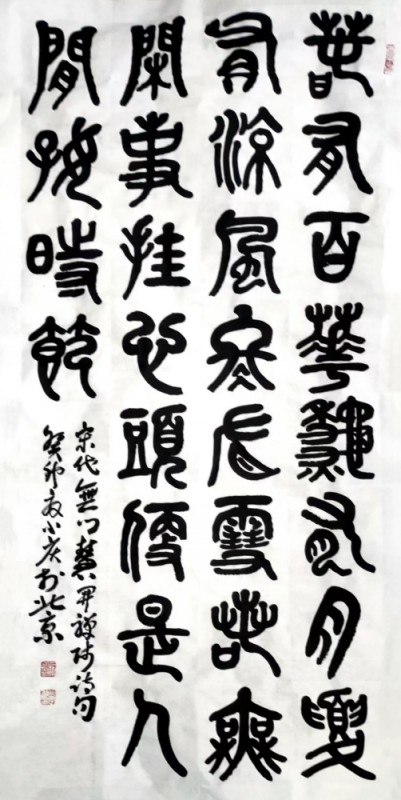 春有百華秋有月夏
有涼風冬有雪若無
閑事挂心頭便是人
閒好時節
宋代無门慧開禪師诗句
癸卯夏小庆於北京